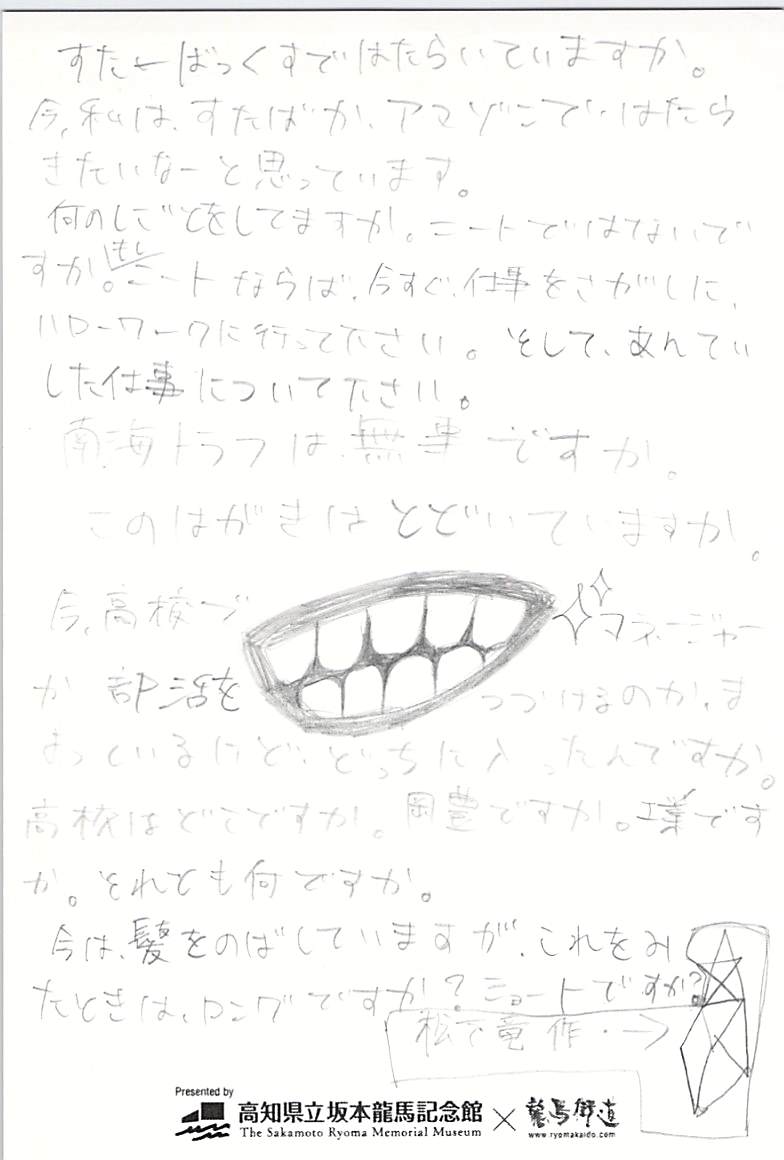 すたーばっくすではたらいていますか。
今、私は、すたばか、アマゾンでいはたら
きたいなーと思っています。
何のしごとをしてますか。ニートではないで
すか。もしニートならば、今すぐ、仕事をさがしに、
ハローワークに行って下さい。そして、あんてい
した仕事について下さい。
南海トラフは、無事ですか。
このはがきはとどいていますか。
今、高校で マネージャー
か 部活を つづけるのか、ま
よっているけど、どっちに入ったんですか。
高校はどこですか。岡豊ですか。工業です
か。それとも何ですか。
今は、髪をのばしていますが、これをみ
たときは、ロングですか?ショートですか?
松下竜作・→
Presented by
高知県立坂本龍馬記念館 × 龍馬街道
The Sakamoto Ryoma Memorial Museum www.ryomakaido.com